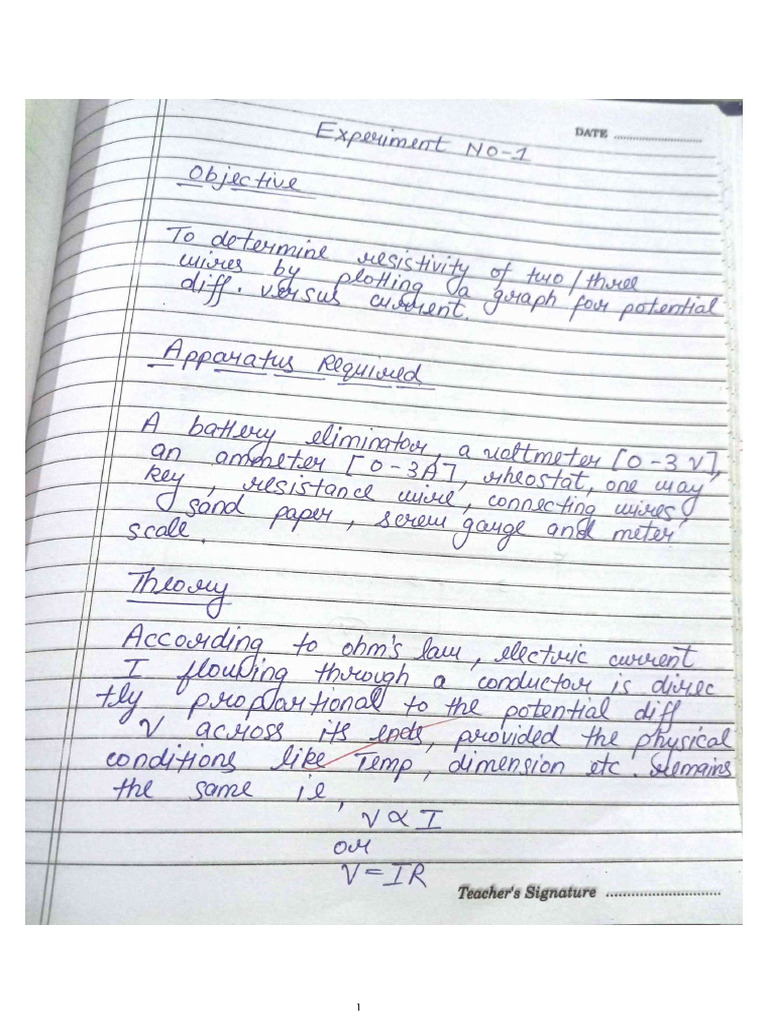 DATE ........................
Experiment NO-1
Objective
To determine resistivity of two/three
wires by plotting a graph for potential
diff. versus current.
Apparatus Required
A battery eliminator, a voltmeter [0-3 V],
an ammeter [0-3A], rheostat, one way
key, resistance wire, connecting wires,
sand paper, screw gauge and meter
scale.
Theory
According to ohm's law, electric current
I flowing through a conductor is direc
tly proportional to the potential diff
V across its ends, provided the physical
conditions like Temp, dimension etc. remains
the same i.e,
V ∝ I
or
V = IR
Teacher's Signature ..............................
1